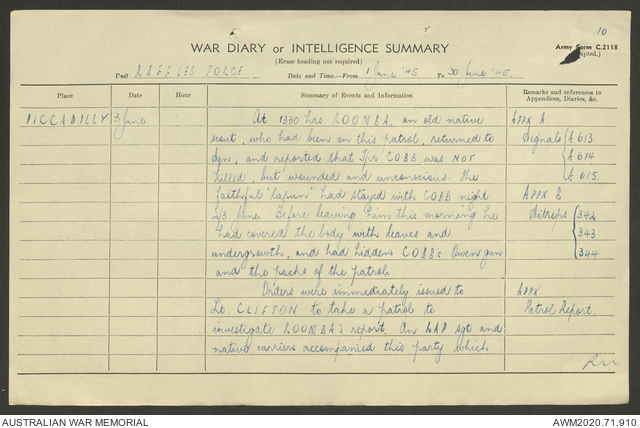 10
WAR DIARY or INTELLIGENCE SUMMARY
Army Form C.2118
(Erase heading not required)
(Adapted.)
Unit RAFFLES FORCE Date and Time.—From 1 June '45 To 30 June '45.
Place Date Hour Summary of Events and Information Remarks and references to Appendices, Diaries, &c.
PICCADILLY 3 June At 1330 hrs LOOMBA, an old native APPX A
scout, who had been on this patrol, returned to Signals A 613
Sgn, and reported that Tpr COBB was NOT A 614
killed, but wounded and unconscious. The A 615.
faithful 'lapun' had stayed with COBB night APPX B
2/3 June. Before leaving him this morning he Sitreps 342
had covered the body with leaves and 343
undergrowth, and had hidden COBB's Owen gun 344
and the packs of the patrol.
Orders were immediately issued to APPX
Lt. CLIFTON to take a patrol to Patrol Report.
investigate LOOMBA's report. An RAP sgt and
native carriers accompanied this party which
AUSTRALIAN WAR MEMORIAL AWM2020.71.910